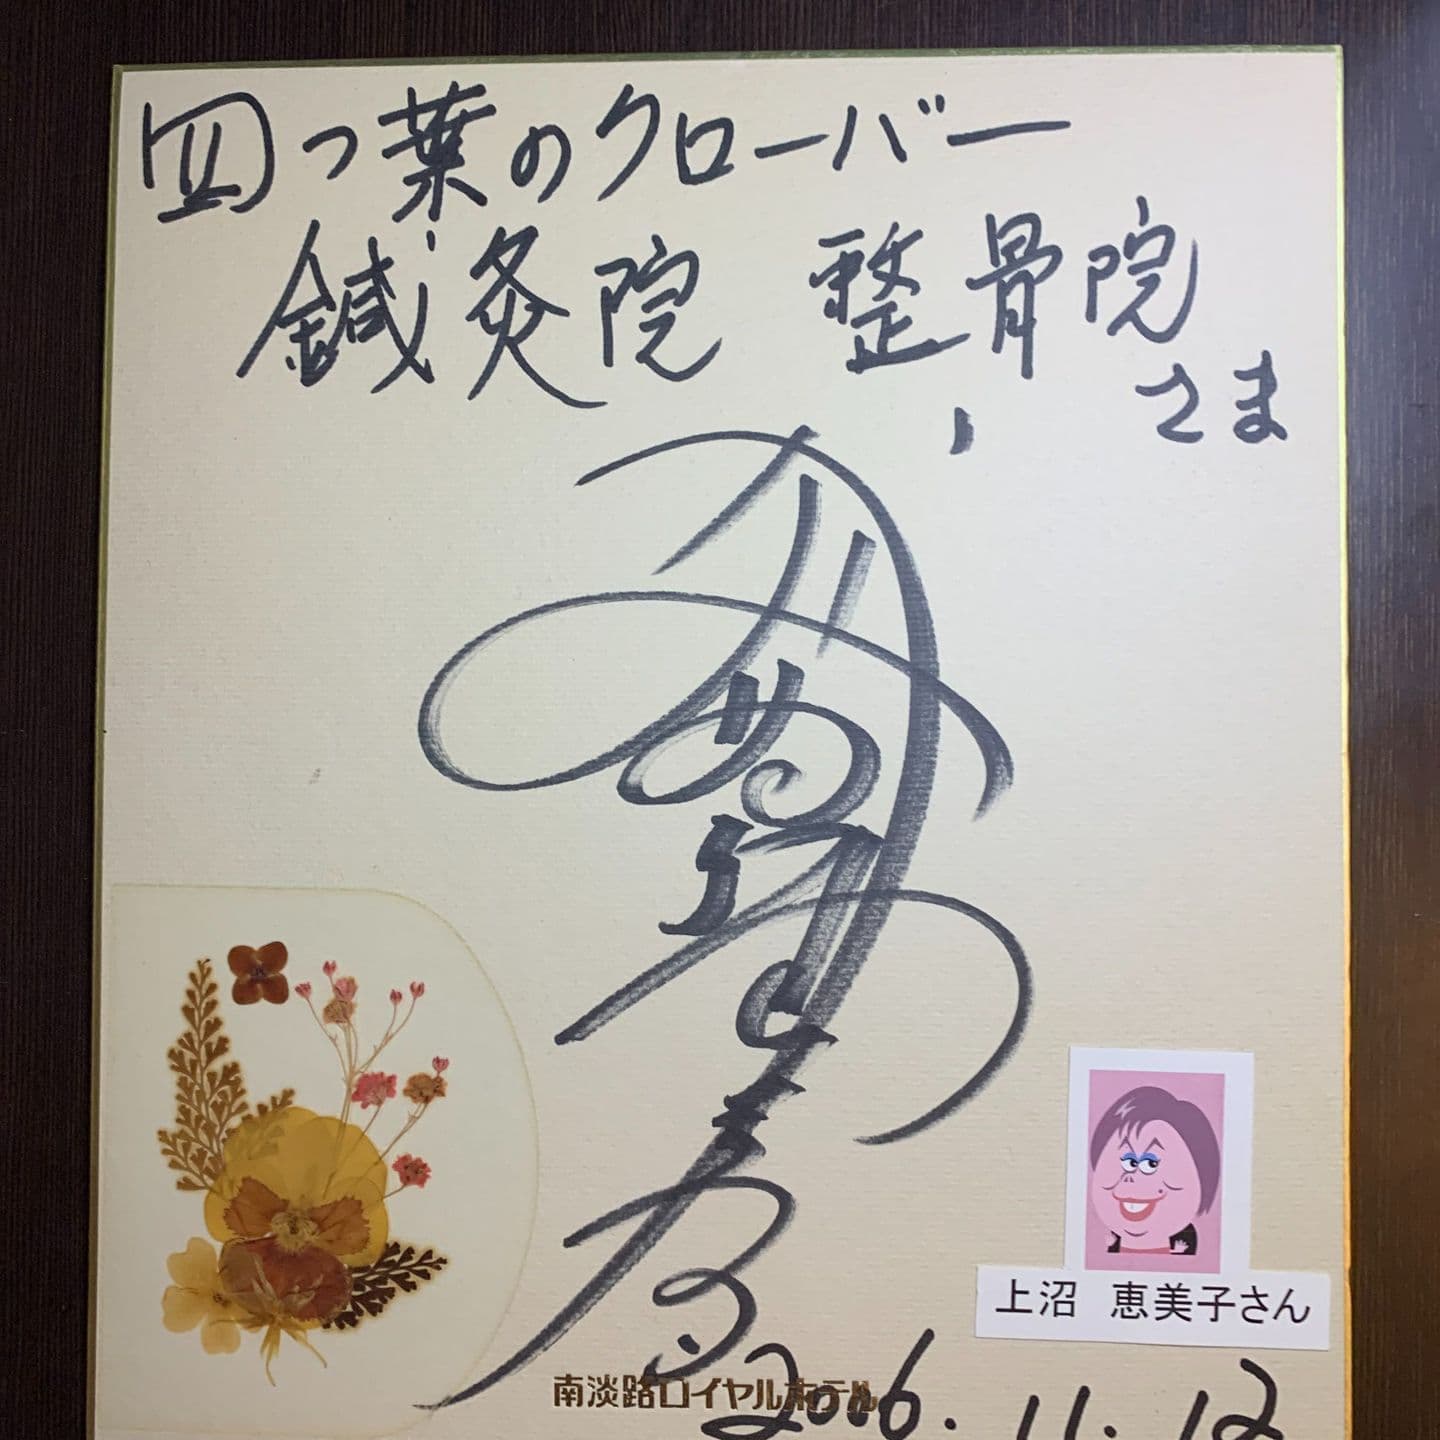 四つ葉のクローバー
鍼灸院 整骨院
さま
上沼 恵美子さん
南淡路ロイヤルホテル
2006.11.12